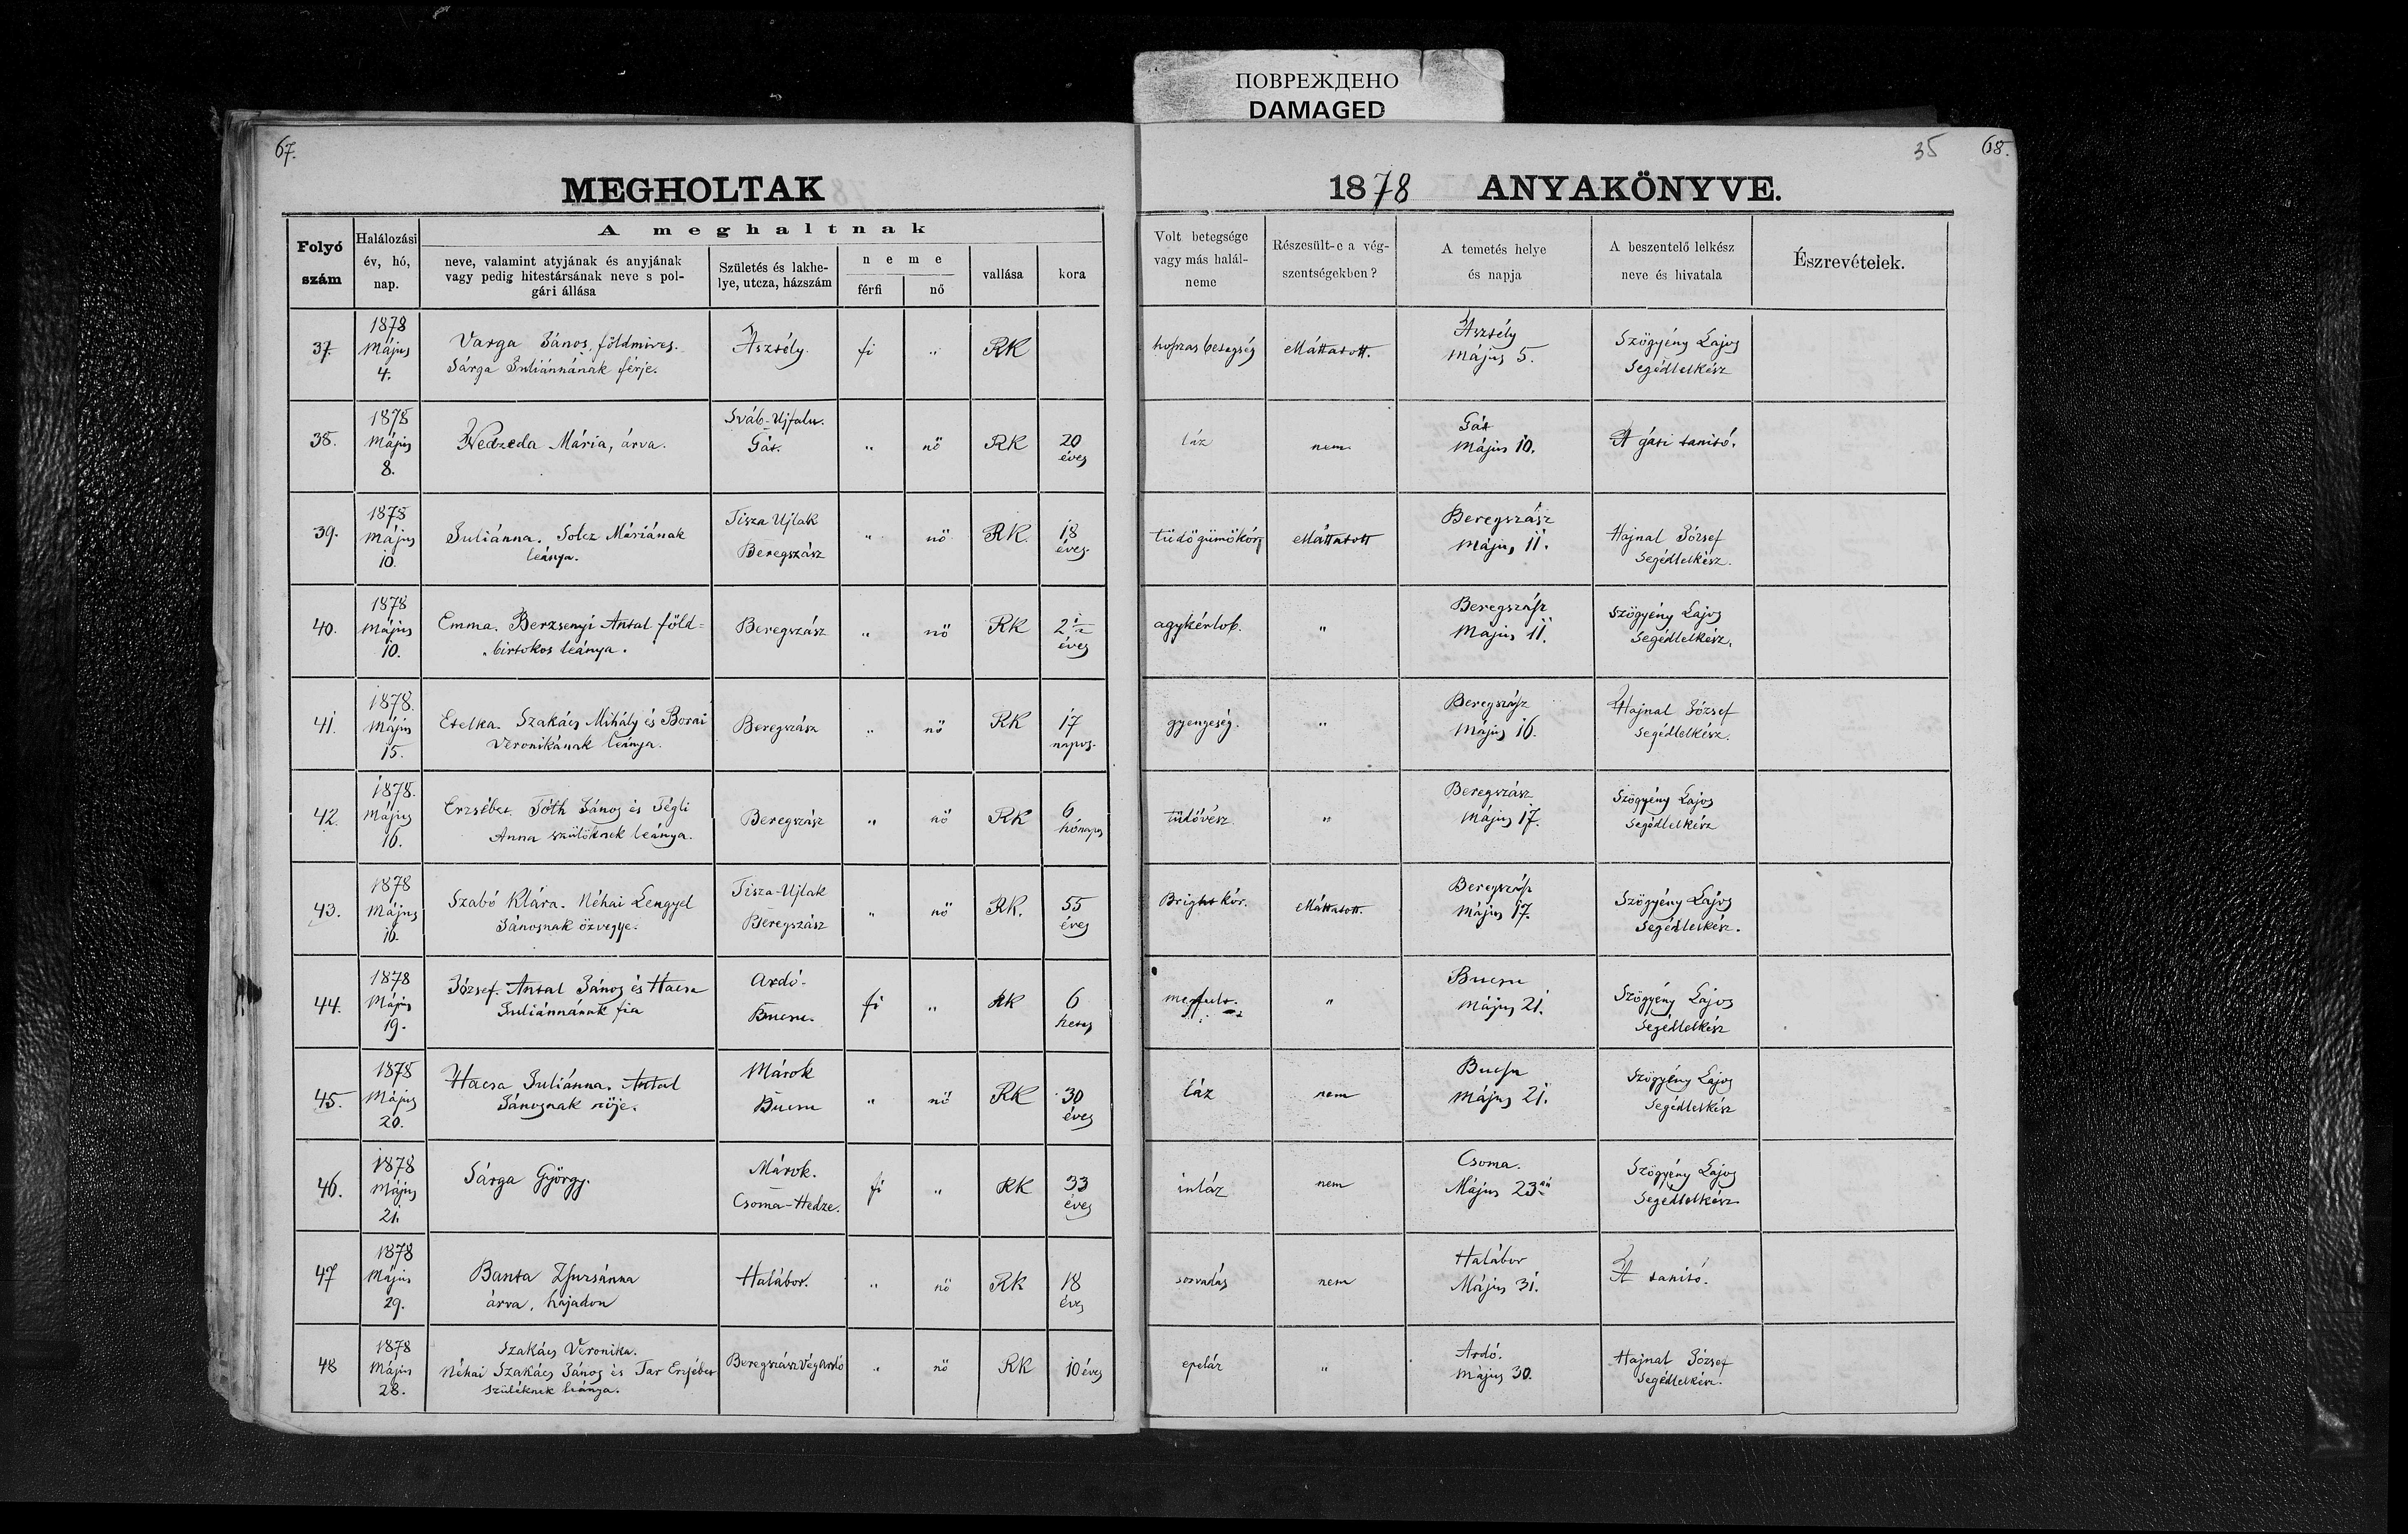 ПОВРЕЖДЕНО
DAMAGED
67.
35
68.
MEGHOLTAK
1878 ANYAKÖNYVE.
Folyó szám
Halálozási év, hó, nap.
A meghaltnak
neve, valamint atyjának és anyjának
vagy pedig hitestársának neve s pol-
gári állása
Születés és lakhe-
lye, utcza, házszám
neme
férfi
nő
vallása
kora
Volt betegsége
vagy más halál-
neme
Részesült-e a vég-
szentségekben?
A temetés helye
és napja
A beszentelő lelkész
neve és hivatala
Észrevételek.
37.
1878
Május
4.
Varga János, földmives.
Sárga Juliánnának férje.
Asztély.
fi
"
RK
hoszas betegség
elláttatott.
Asztély
Május 5.
Szögyény Lajos
Segédlelkész
38.
1878
Május
8.
Mária, árva.
Sváb-Ujfalu.
Gát.
"
nő
RK
20
éves
láz
nem
Gát
Május 10.
A gáti tanitó.
39.
1878
Május
10.
Juliánna. Solcz Máriának
leánya.
Tisza Ujlak
Beregszász
"
nő
RK.
18
éves.
tüdőgümőkór
elláttatott
Beregszász
Május 11.
Hajnal József
Segédlelkész.
40.
1878
Május
10.
Emma. Berzsenyi Antal föld=
birtokos leánya.
Beregszász
"
nő
RK
2 1/2
éves
agykérlob.
"
Beregszász
Május 11.
Szögyény Lajos
Segédlelkész.
41.
1878.
Május
15.
Etelka. Szakács Mihály és Borai
Veronikának leánya.
Beregszász
"
nő
RK
17
napos.
gyengeség.
"
Beregszász
Május 16.
Hajnal József
Segédlelkész.
42.
1878.
Május
16.
Erzsébet. Tóth János és Tégli
Anna szülőknek leánya.
Beregszász
"
nő
RK
6
hónapos
tüdővész
"
Beregszász
Május 17.
Szögyény Lajos
Segédlelkész
43.
1878
Május
16.
Szabó Klára. Néhai Lengyel
Jánosnak özvegye.
Tisza-Ujlak
Beregszász
"
nő
RK.
55
éves
Bright kór.
elláttatott.
Beregszász
Május 17.
Szögyény Lajos
Segédlelkész.
44.
1878
Május
19.
József. Antal János és Hacsa
Juliánnának fia
Ardó.
Bucsu.
fi
"
RK
6
hetes
megfult.
"
Bucsu
Május 21.
Szögyény Lajos
Segédlelkész
45.
1878
Május
20.
Hacsa Juliánna. Antal
Jánosnak nője.
Márok
Bucsu
"
nő
RK
30
éves
láz
nem
Bucsu
Május 21.
Szögyény Lajos
Segédlelkész
46.
1878
Május
21.
Sárga György.
Márok.
Csoma-Hedze.
fi
"
RK
33
éves
inláz
nem
Csoma.
Május 23án
Szögyény Lajos
Segédlelkész
47
1878
Május
29.
Banta Zsuzsánna
árva, hajadon
Halábor.
"
nő
RK
18
éves
sorvadás
nem
Halábor
Május 31.
A tanitó.
48
1878
Május
28.
Szakács Veronika.
Néhai Szakács János és Tar Erzsébet
szülőknek leánya.
Beregszász Végardó
"
nő
RK
10 éves
epeláz
"
Ardó.
Május 30.
Hajnal József
Segédlelkész.